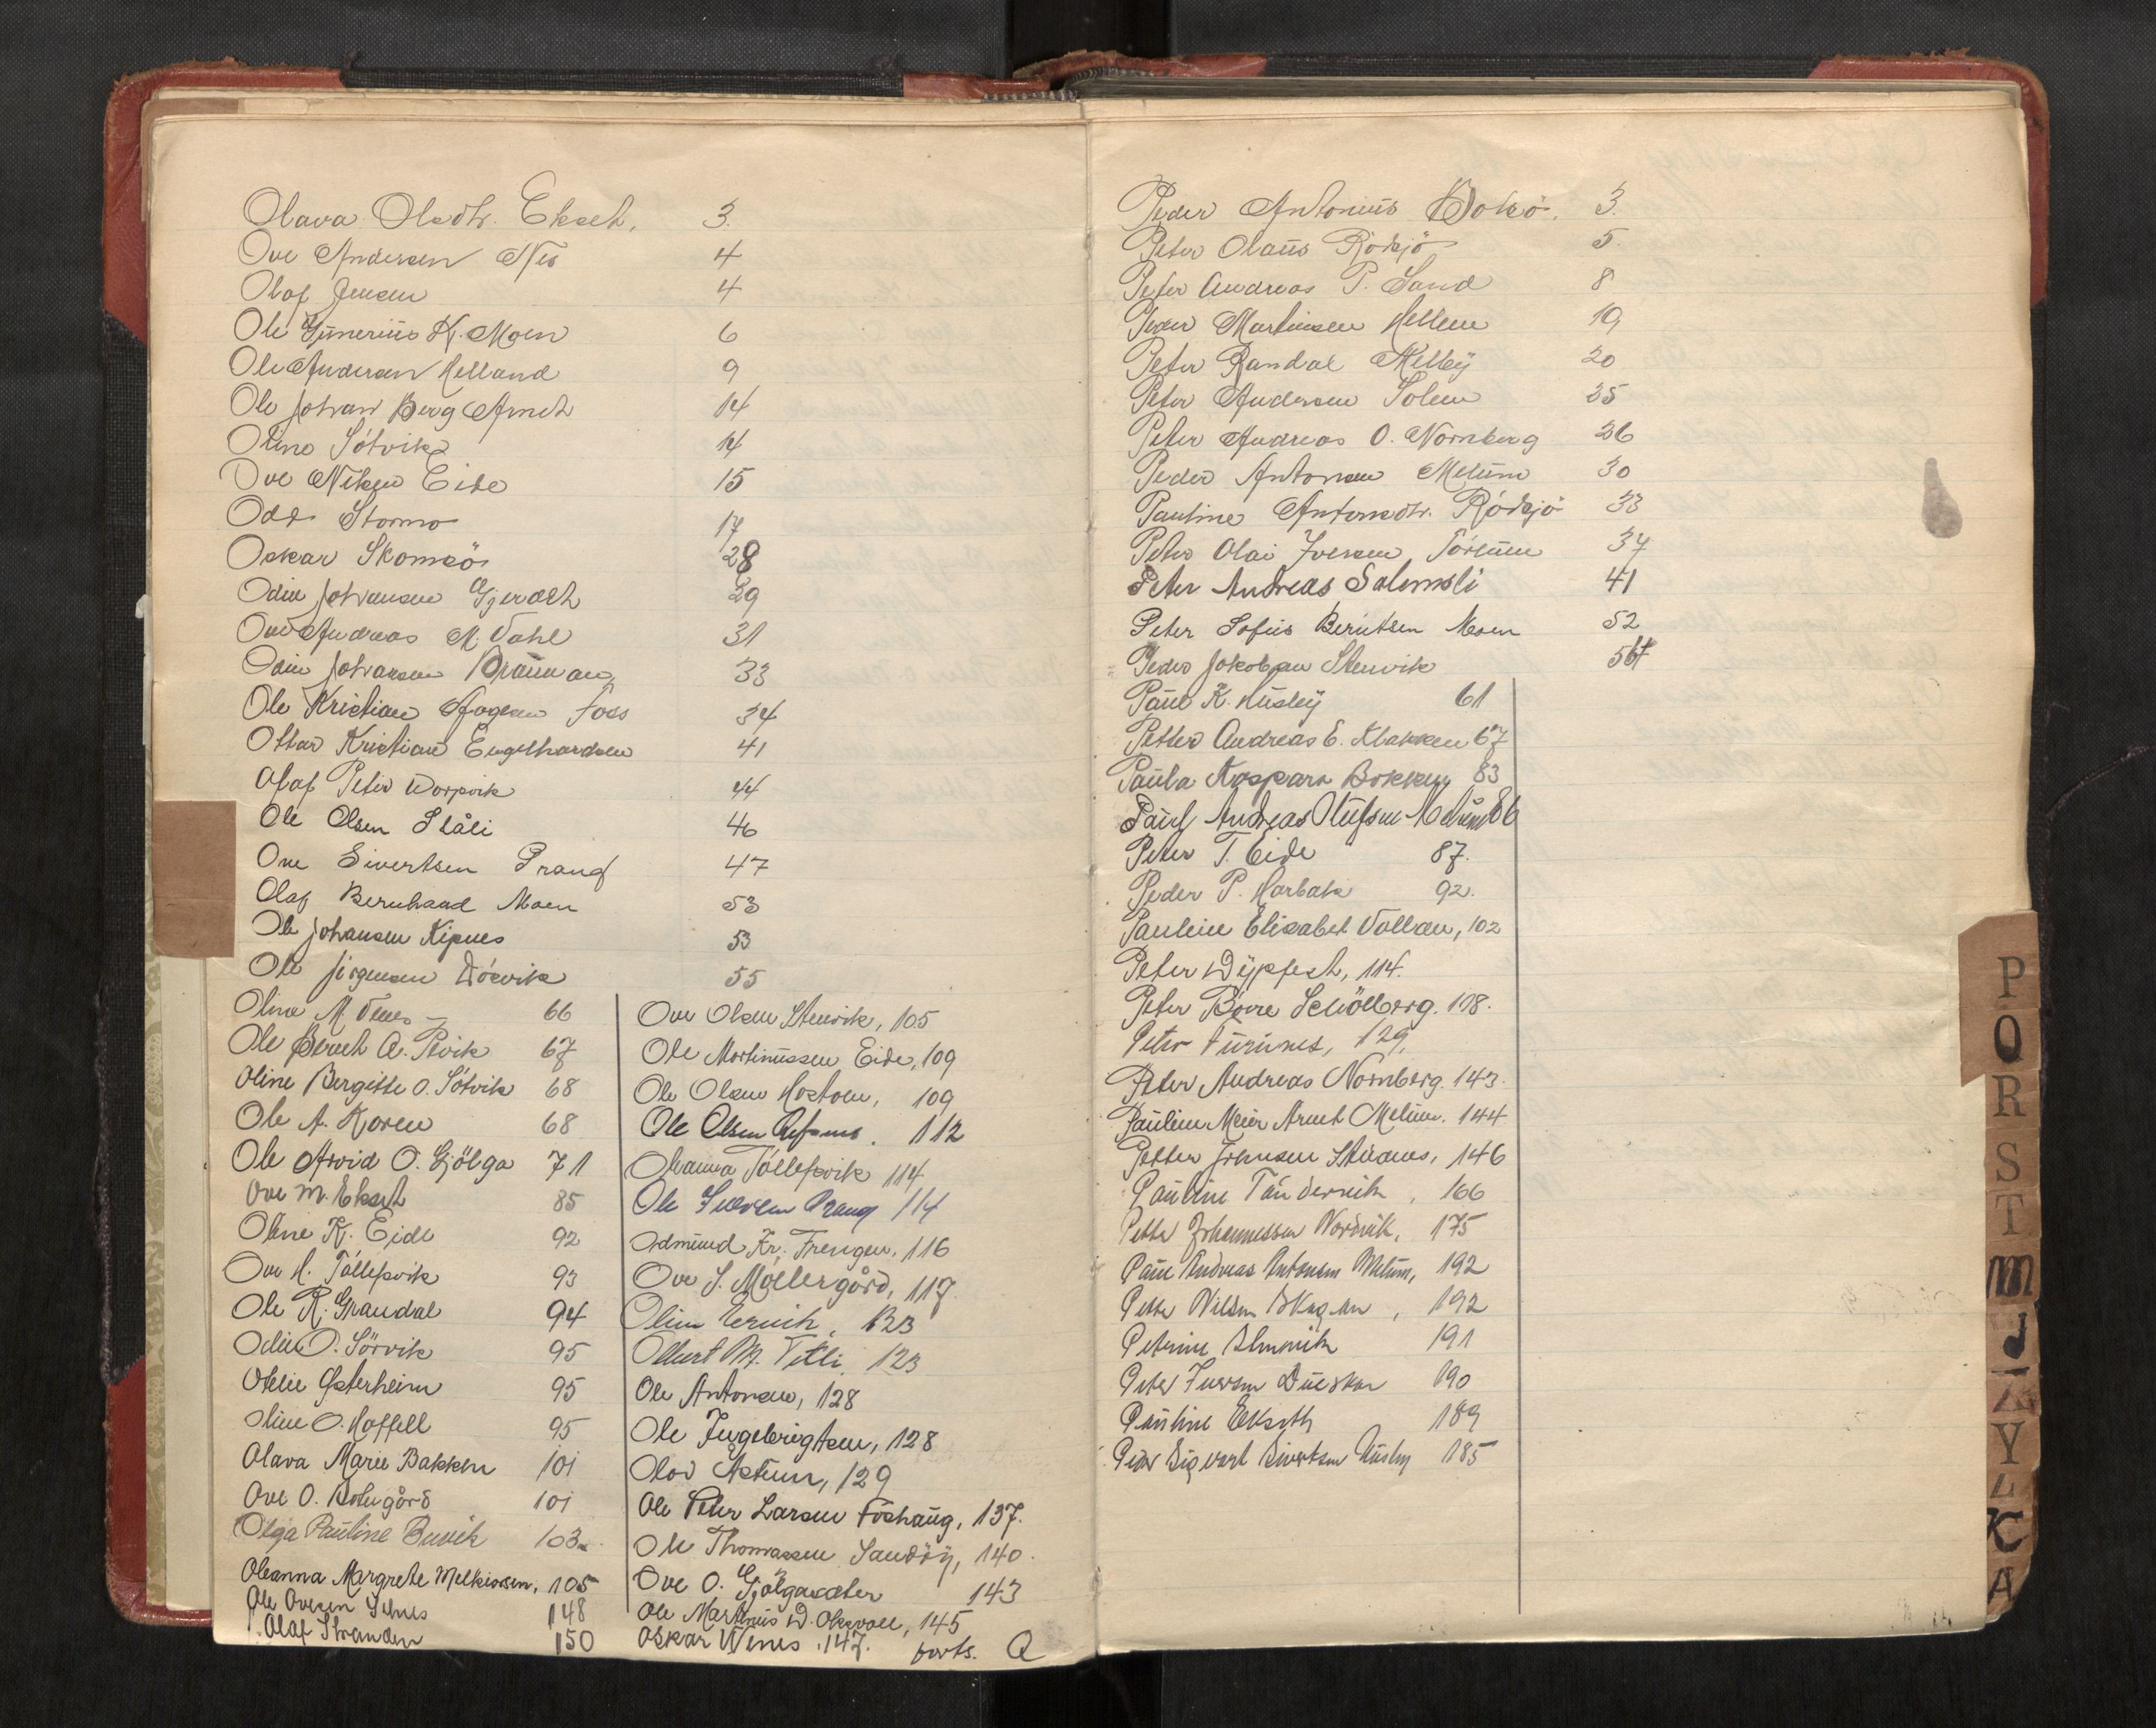 Olava Olsdtr. Ekseth, 3.
Ove Andersen Nes 4
Olaf Jensen 4
Ole Gunerius K. Moen 6
Ole Andersen Helland 9
Ole Johan Berg Arnet 14
Oline Sötvik 14
Ove Nilsen Eide 15
Odd Stormo 17
Oskar Skomsö 28
Odin Johansen Gjeraldt 29
Ove Andreas M. Dahl 31
Odin Johansen Braumann 33
Ole Kristian Aagesen Foss 34
Ottar Kristian Engelhardsen 41
Olaf Peter Worpvik 44
Ole Olsen Slåli 46
Ove Sivertsen Prang 47
Olaf Bernhard Moen 53
Ole Johansen Kipnes 53
Ole Jörgensen Dösvik 55
Oline M. 66
Ole Berneth A. 67
Oline Bergitte O. Sötvik 68
Ole A. Koren 68
Ole Arvid O. Gjölga 71
Ove M. Ekseth 85
Oline K. Eide 92
Ove H. Töllefsvik 93
Ole R. Grandal 94
Odin O. Sörvik 95
Otelie Österheim 95
Oline O. Hoffell 95
Olava Marie Bakken 101
Ove O. Boligård 101
Olga Pauline Buvik 103
Oleanna Margrete Melkiorsen, 105
Ole Ovesen Selnes 148
Olaf Stranden 150
Ove Olsen Stenvik, 105
Ole Mortinussen Eide, 109
Ole Olsen Hostoen, 109
Ole Olsen 112
Oleanna Töllefsvik 114
Ole Iversen Prang 114
Odmund Kr. Frengen, 116
Ove S. Möllergård, 117.
Oline Ervik, 123
Olbert M. Tetli 123
Ole Antonsen, 128
Ole Ingebrigtsen, 128
Olov Astun, 129
Ole Peter Larsen Foshaug, 137.
Ole Thomassen Sandöy, 140.
Ove O. Gjölgasæter 143
Ole Martinus D. Oksvoll, 145
Oskar Wenes, 147.
forts. Q
Peder Antonius Boksö. 3.
Peter Olaus Rödsjö 5.
Peter Andreas P. Sand 8
Peder Martinsen Hellem 19
Peter Randal Melby 20
Peter Andersen Solem 25
Peter Andreas O. Nornberg 26
Peder Antonsen Melum 30
Pauline Antonsdtr. Rödsjö 33
Peter Olai Iversen Sörlium 37
Peter Andreas Salemsli 41
Peter Sofus Berntsen Moen 52
Peder Jakobsen Stenvik 56
Paul K. Husby 61
Petter Andreas E. Klakken 67
Paula Kaspara Bokken 83
Paul Andreas Olufsen Melum 86
Peter T. Eide 87.
Peder P. Harbak 92.
Pauline Elisabet Vollan, 102
Peter Dypfest, 114.
Peter Börre Schölberg. 118.
Petra Furunes, 129.
Peter Andreas Nornberg. 143.
Pauline Meier Arnet Melum. 144
Petter Johnsen Steanes, 146
Pauline Tändervik, 166
Petter Johannessen Nordvik, 175
Paul Andreas Antonsen Melum, 192
Petter Nilsen Skagen, 192
Petrine Almvik 191
Peter Iversen Dueskar 190
Pauline Ekseth 189
Peder Sigvart Sivertsen Husby 185
P
O
R
S
T
m
J
Y
L
K
A